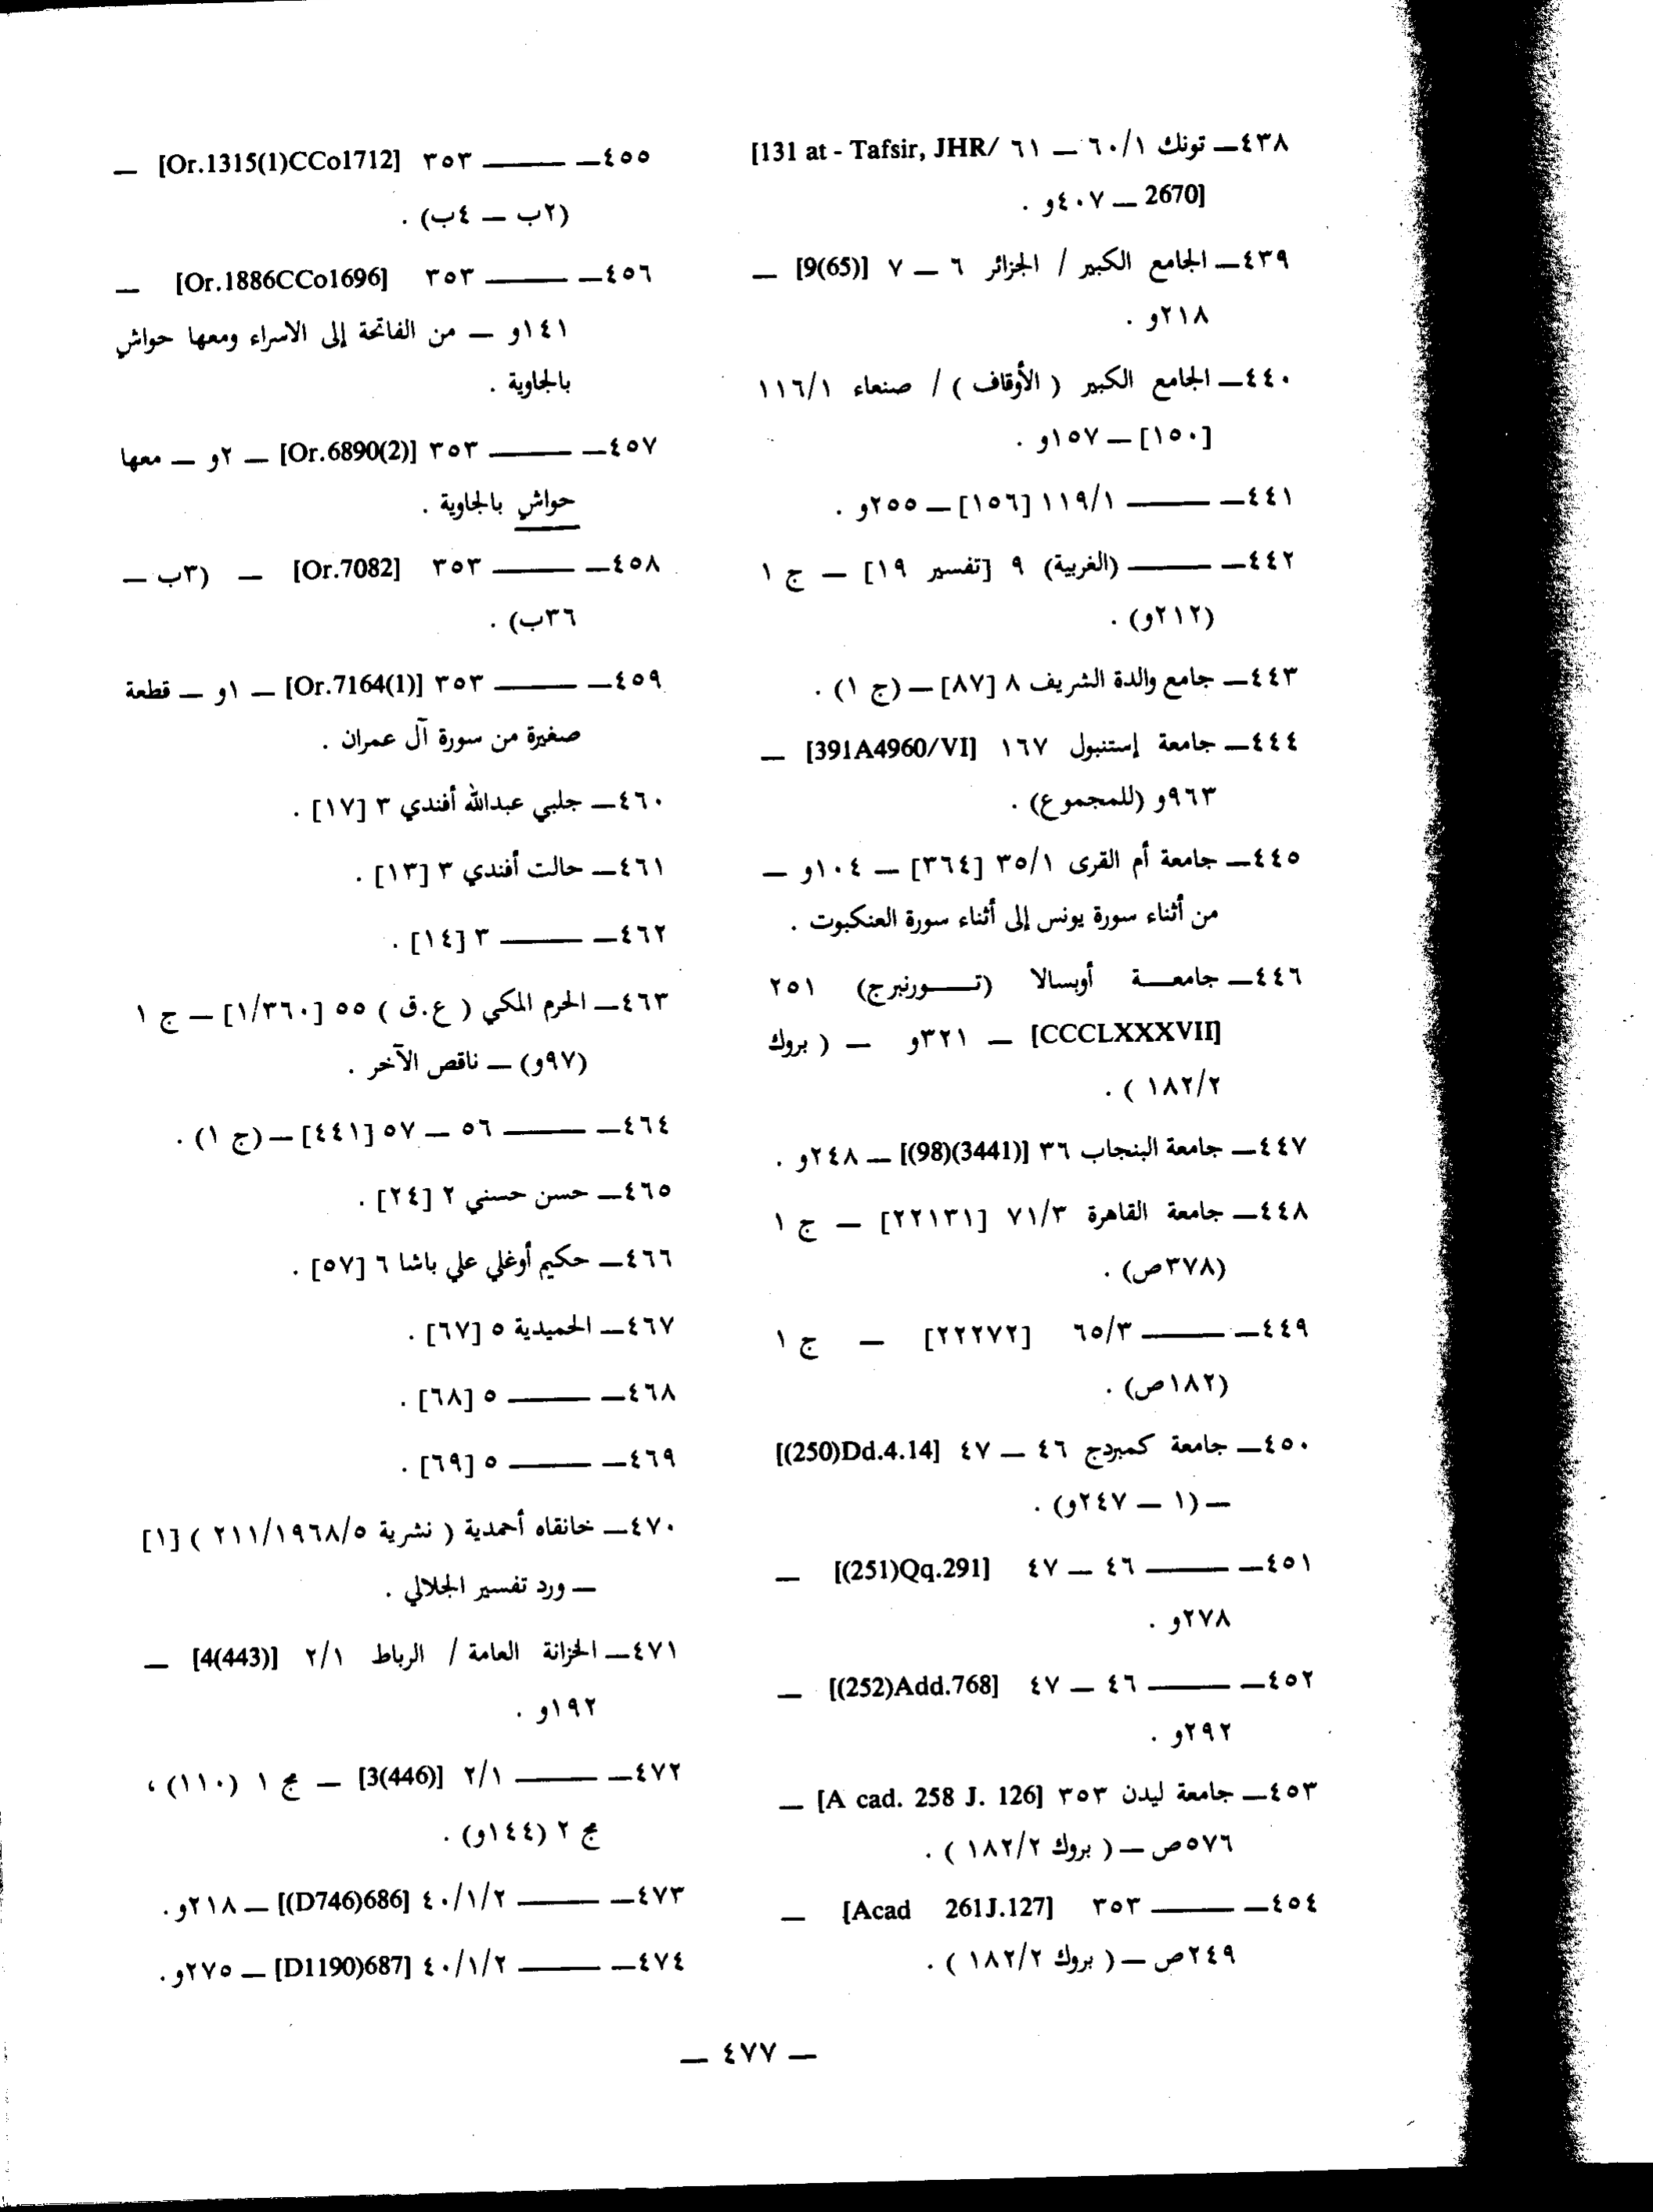 ٤٣٨ـ تونك ٦٠/١ ـ ٦١ [131 at - Tafsir, JHR/
2670] ـ ٤٠٧و .
٤٣٩ـ الجامع الكبير / الجزائر ٦ ـ ٧ [9(65)] ـ
٢١٨و .
٤٤٠ـ الجامع الكبير ( الأوقاف ) / صنعاء ١١٦/١
[١٥٠] ـ ١٥٧و .
٤٤١ـ ــــــ ١١٩/١ [١٥٦] ـ ٢٥٥و .
٤٤٢ـ ــــــ (الغربية) ٩ [تفسير ١٩] ـ ج ١
(٢١٢و) .
٤٤٣ـ جامع والدة الشريف ٨ [٨٧] ـ (ج ١) .
٤٤٤ـ جامعة إستنبول ١٦٧ [391A4960/VI] ـ
٩٦٣و (للمجموع) .
٤٤٥ـ جامعة أم القرى ٣٥/١ [٣٦٤] ـ ١٠٤و ـ
من أثناء سورة يونس إلى أثناء سورة العنكبوت .
٤٤٦ـ جامعـــة أوبسالا (تـــورنبرج) ٢٥١
[CCCLXXXVII] ـ ٣٢١و ـ ( بروك
١٨٢/٢ ) .
٤٤٧ـ جامعة البنجاب ٣٦ [(98)(3441)] ـ ٢٤٨و .
٤٤٨ـ جامعة القاهرة ٧١/٣ [٢٢١٣١] ـ ج ١
(٣٧٨ص) .
٤٤٩ـ ــــــ ٦٥/٣ [٢٢٢٧٢] ـ ج ١
(١٨٢ص) .
٤٥٠ـ جامعة كمبردج ٤٦ ـ ٤٧ [(250)Dd.4.14]
ـ (١ ـ ٢٤٧و) .
٤٥١ـ ــــــ ٤٦ ـ ٤٧ [(251)Qq.291] ـ
٢٧٨و .
٤٥٢ـ ــــــ ٤٦ ـ ٤٧ [(252)Add.768] ـ
٢٩٢و .
٤٥٣ـ جامعة ليدن ٣٥٣ [A cad. 258 J. 126] ـ
٥٧٦ص ـ ( بروك ١٨٢/٢ ) .
٤٥٤ـ ــــــ ٣٥٣ [Acad 261J.127] ـ
٢٤٩ص ـ ( بروك ١٨٢/٢ ) .
٤٥٥ـ ــــــ ٣٥٣ [Or.1315(1)CCo1712] ـ
(٢ب ـ ٤ب) .
٤٥٦ـ ــــــ ٣٥٣ [Or.1886CCo1696] ـ
١٤١و ـ من الفاتحة إلى الاسراء ومعها حواش
بالجاوية .
٤٥٧ـ ــــــ ٣٥٣ [Or.6890(2)] ـ ٢و ـ معها
حواش بالجاوية .
٤٥٨ـ ــــــ ٣٥٣ [Or.7082] ـ (٣ب ـ
٣٦ب) .
٤٥٩ـ ــــــ ٣٥٣ [Or.7164(1)] ـ ١و ـ قطعة
صغيرة من سورة آل عمران .
٤٦٠ـ جلبي عبدالله أفندي ٣ [١٧] .
٤٦١ـ حالت أفندي ٣ [١٣] .
٤٦٢ـ ــــــ ٣ [١٤] .
٤٦٣ـ الحرم المكي ( ع.ق ) ٥٥ [١/٣٦٠] ـ ج ١
(٩٧و) ـ ناقص الآخر .
٤٦٤ـ ــــــ ٥٦ ـ ٥٧ [٤٤١] ـ (ج ١) .
٤٦٥ـ حسن حسني ٢ [٢٤] .
٤٦٦ـ حكيم أوغلي علي باشا ٦ [٥٧] .
٤٦٧ـ الحميدية ٥ [٦٧] .
٤٦٨ـ ــــــ ٥ [٦٨] .
٤٦٩ـ ــــــ ٥ [٦٩] .
٤٧٠ـ خانقاه أحمدية ( نشرية ٢١١/١٩٦٨/٥ ) [١]
ـ ورد تفسير الجلالي .
٤٧١ـ الخزانة العامة / الرباط ٢/١ [4(443)] ـ
١٩٢و .
٤٧٢ـ ــــــ ٢/١ [3(446)] ـ مج ١ (١١٠) ،
مج ٢ (١٤٤و) .
٤٧٣ـ ــــــ ٤٠/١/٢ [(D746)686] ـ ٢١٨و.
٤٧٤ـ ــــــ ٤٠/١/٢ [D1190)687] ـ ٢٧٥و.
ـ ٤٧٧ ـ